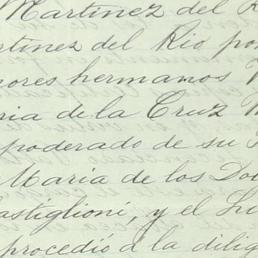 Martinez del R
rtinez del Rio por
ores hermanos
ria de la Cruz
poderado de su
Maria de los Do
astiglioni, y el Li
procedió á la dilig